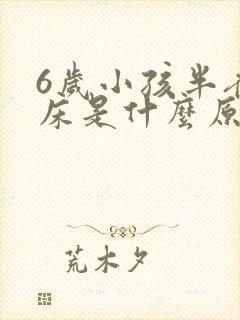 6歲小孩半
床是什麼原
荒木夕